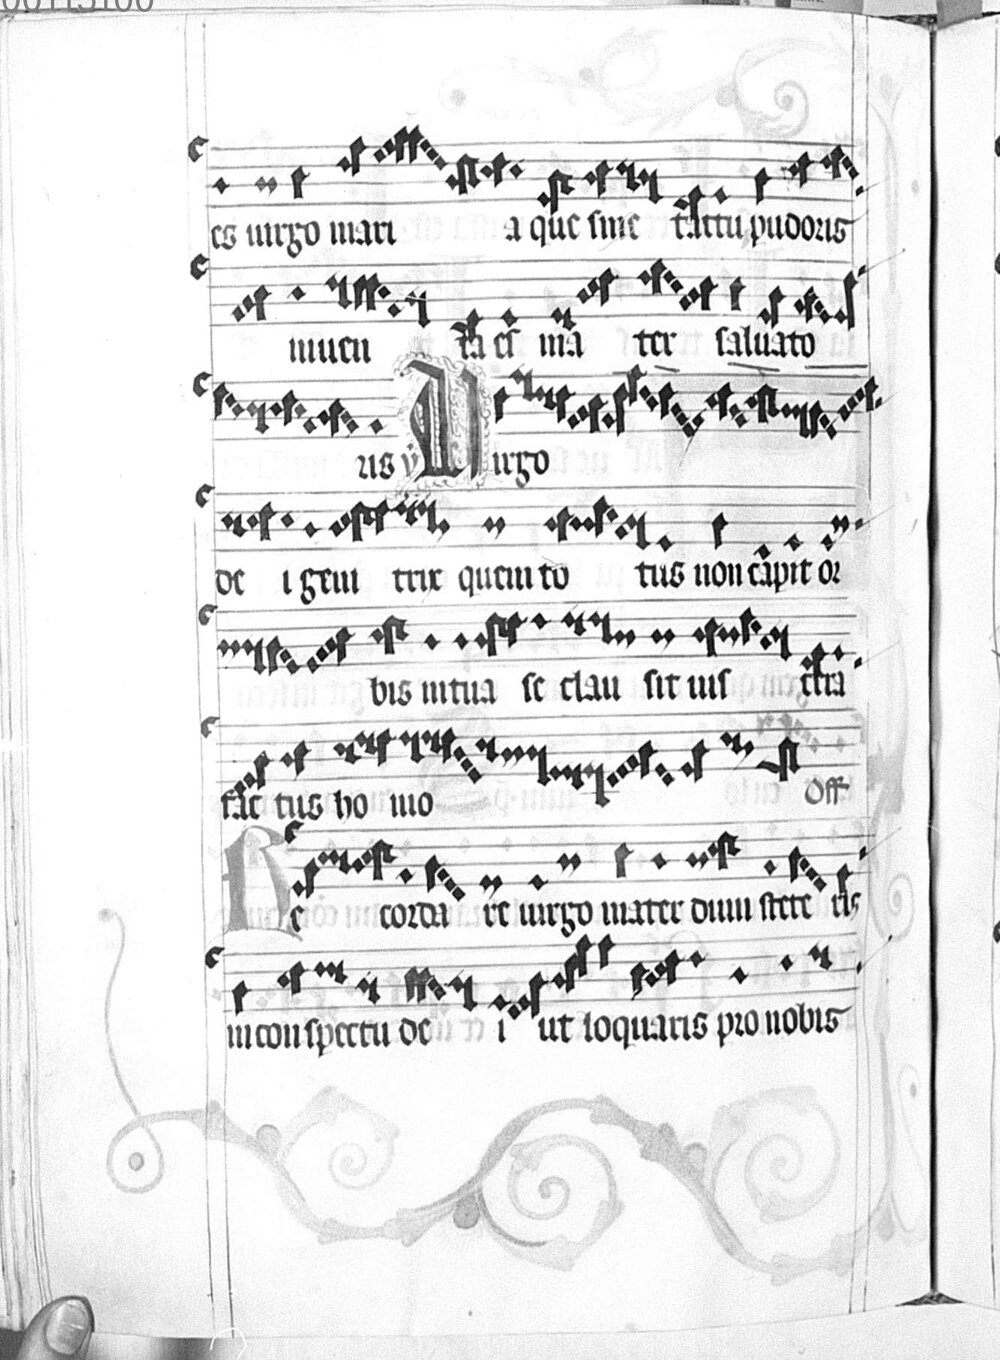 es uirgo mari a que sine tactu pudoris
inuen ta es ma ter saluato
ris ℣ Uirgo
de i geni trix quem to tus non capit or
bis in tua se clau sit uis cera
fac tus ho mo Off
Re corda re uirgo mater dum stete ris
in con spectu de i ut loquaris pro nobis